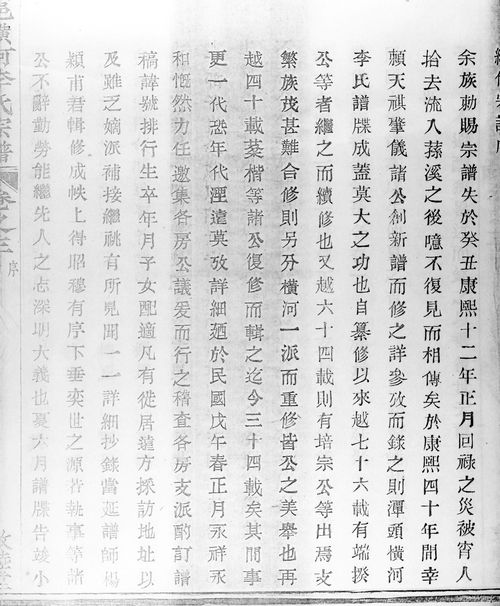 余族勅賜宗譜失於癸丑康熙十二年正月回祿之災被宵人
拾去流入蓀溪之後噫不復見而相傳矣於康熙四十年間幸
賴天祺肇儀諸公創新譜而修之詳參攷而錄之則潭頭横河
李氏譜牒成蓋莫大之功也自纂修以來越七十六載有端揆
公等者繼之而續修也又越六十四載則有培宗公等出焉支
繁族茂甚難合修則另分横河一派而重修皆公之美舉也再
越四十載棻楷等諸公復修而輯之迄今三十四載矣其間事
更一代恐年代湮遠莫攷詳細廼於民國戊午春正月永祥永
和慨然力任邀集各房公議爰而行之稽查各房支派酌訂譜
稿諱號排行生卒年月子女配適凡有徙居遠方採訪地址以
及雖乏嫡派補接繼祧有所見聞一一詳細抄錄當延譜師楊
穎甫君輯修成帙上得昭穆有序下垂奕世之源若執事等諸
公不辭勤勞能繼先人之志深明大義也夏六月譜牒告竣小
邑横河李氏宗譜
卷之三
序